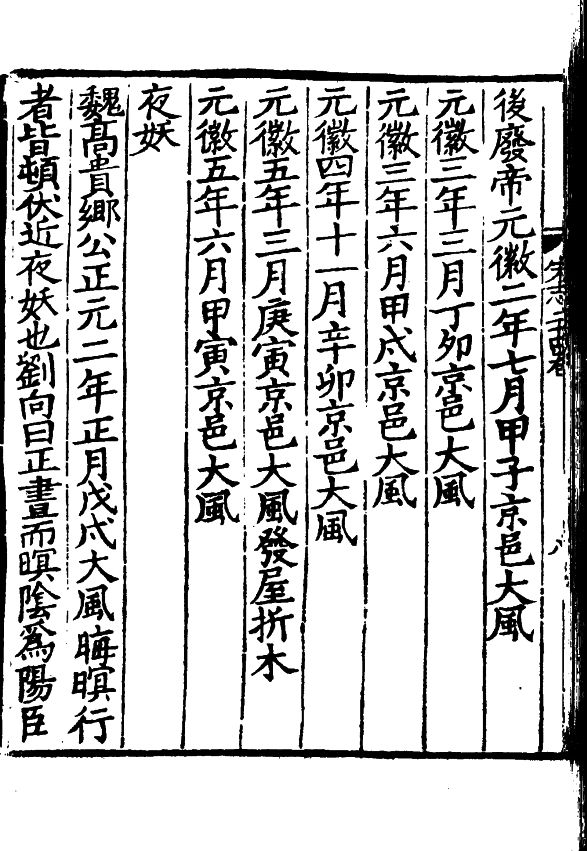 宋志二十四卷
八
後廢帝元徽二年七月甲子京邑大風
元徽三年三月丁夘京邑大風
元徽三年六月甲戍京邑大風
元徽四年十一月辛卯京邑大風
元徽五年三月庚寅京邑大風發屋折木
元徽五年六月甲寅京邑大風
夜妖
魏高貴鄉公正元二年正月戊戍大風晦暝行
者皆頓伏近夜妖也劉向曰正晝而暝陰爲陽臣